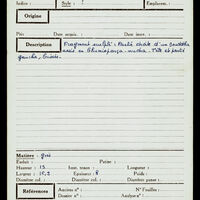 Indice : Style : ? Emplacem. :
Origine
Prix : Date acquis. : Date insc. :
Description Fragment sculpté : Partie droite d'un Bouddha
assis en Bhūmisparça-mudrā. Tête et partie
gauche, brisés.
Matière : grès
Enduit : Patine :
Hauteur : 13 Jnt. tenon : Longueur :
Largeur : 10,2 Epaisseur : 8 Poids :
Diamètre : Diamètre col. : Diamètre panse :
Références Anciens nos : N° Fouilles :
Dossier : Analyse n° :